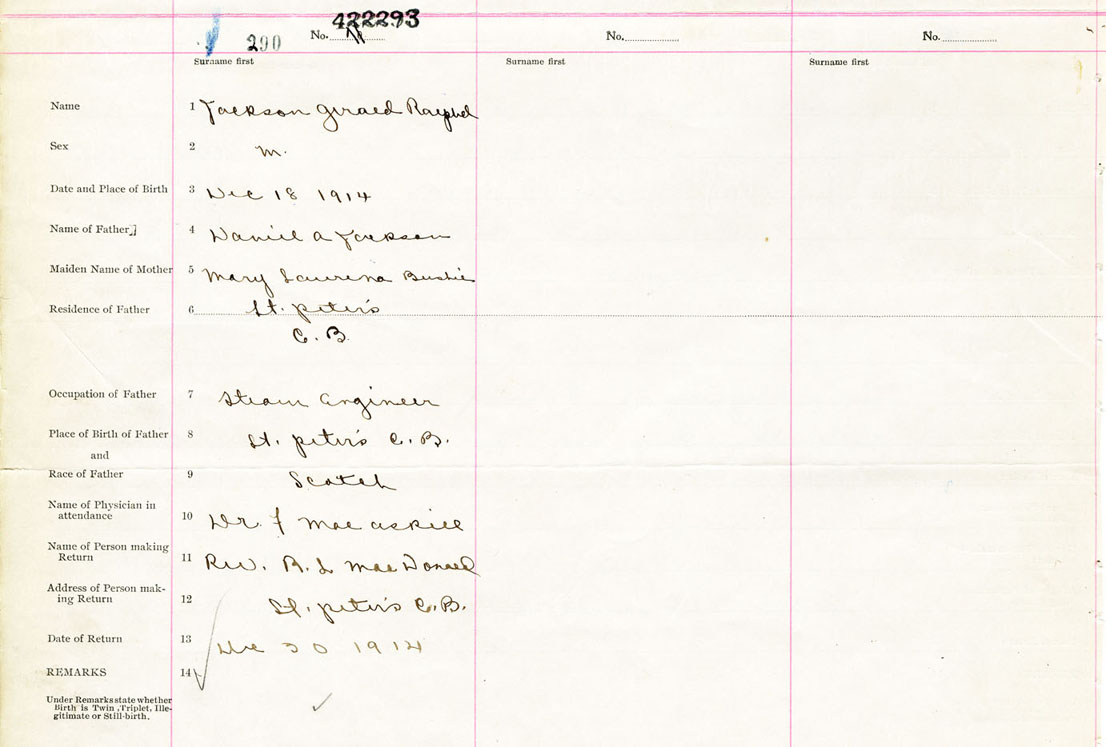 422293
290 No. No. No.
Surname first Surname first Surname first
Name 1 Jackson Gerald Raphel
Sex 2 M.
Date and Place of Birth 3 Dec 18 1914
Name of Father 4 Daniel A Jackson
Maiden Name of Mother 5 Mary Laurena
Residence of Father 6 St. Peter's
C. B.
Occupation of Father 7 Steam Engineer
Place of Birth of Father 8 St. Peter's C. B.
and
Race of Father 9 Scotch
Name of Physician in
attendance 10 Dr. J MacAskill
Name of Person making
Return 11 Rev. R. L MacDonald
Address of Person mak-
ing Return 12 St. Peter's C. B.
Date of Return 13 Dec 30 1914
REMARKS 14
Under Remarks state whether
Birth is Twin, Triplet, Ille-
gitimate or Still-birth.